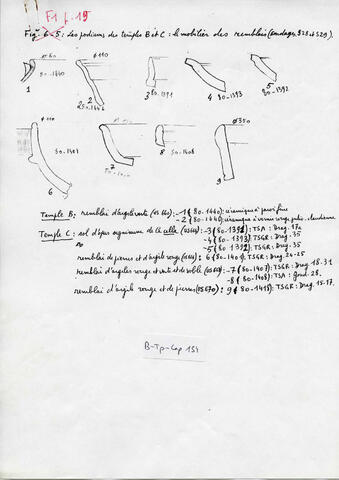 F1 p. 15
Fig. 6 - 5 : Les podiums des temples B et C : le mobilier des remblais (sondages S28 et S29).
ø 110
80-1440
1
2
80-1391
3
4 80-1393
5
80-1392
ø 110
80-1401
6
8
80-1408
ø 350
9
Temple B : remblai d'argile verte : -1 (80-1440) : céramique à paroi fine
-2 (80-1441) : céramique à vernis rouge
Temple C : sol d'épais de la cella : -3 (80-1391) : TSA : Drag. 17a
-4 (80-1393) : TSGR : Drag. 35
-5 (80-1392) : TSGR : Drag. 35
remblai de pierres et d'argile rouge : 6 (80-1401) : TSGR : Drag. 24-25
remblai d'argiles rouge et verte et de sable : -7 (80-1407) : TSGR : Drag. 18.31
-8 (80-1408) : TSA : 28.
remblai d'argile rouge et de pierres : 9 (80-1415) : TSGR : Drag. 15-17.
B-Tp-Cap 154